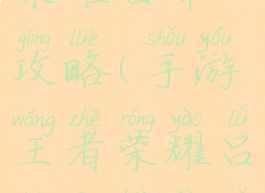 gōng lüè shǒu yóu
攻略(手游
wáng zhě róng yào lǚ
王者荣耀吕